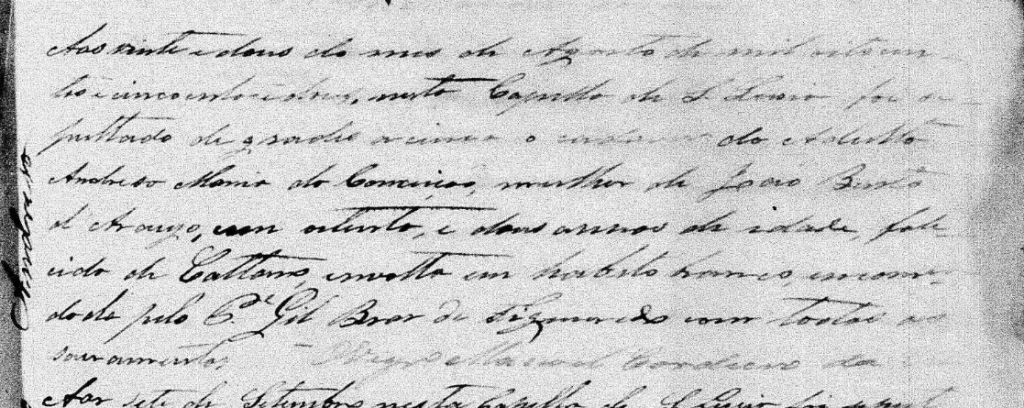 Aos vinte e dous do mes de Agosto de mil oitocen
tos e cincoenta e dous, nesta Capella de S. Luzia foi se
pultado de grades acima o cadaver da Adulta
Andreza Maria da Conceiçao, mulher de Joao
d'Araujo, com oitenta, e dous annos de idade, fale
cida de Cattarro, envolta em habito branco, encomen
dada pelo P.e Gil Braz de Figueiredo com todos os
sacramentos. Manoel Cordeiro da
Aos sete de Setembro nesta Capella de S. Luzia foi sepul